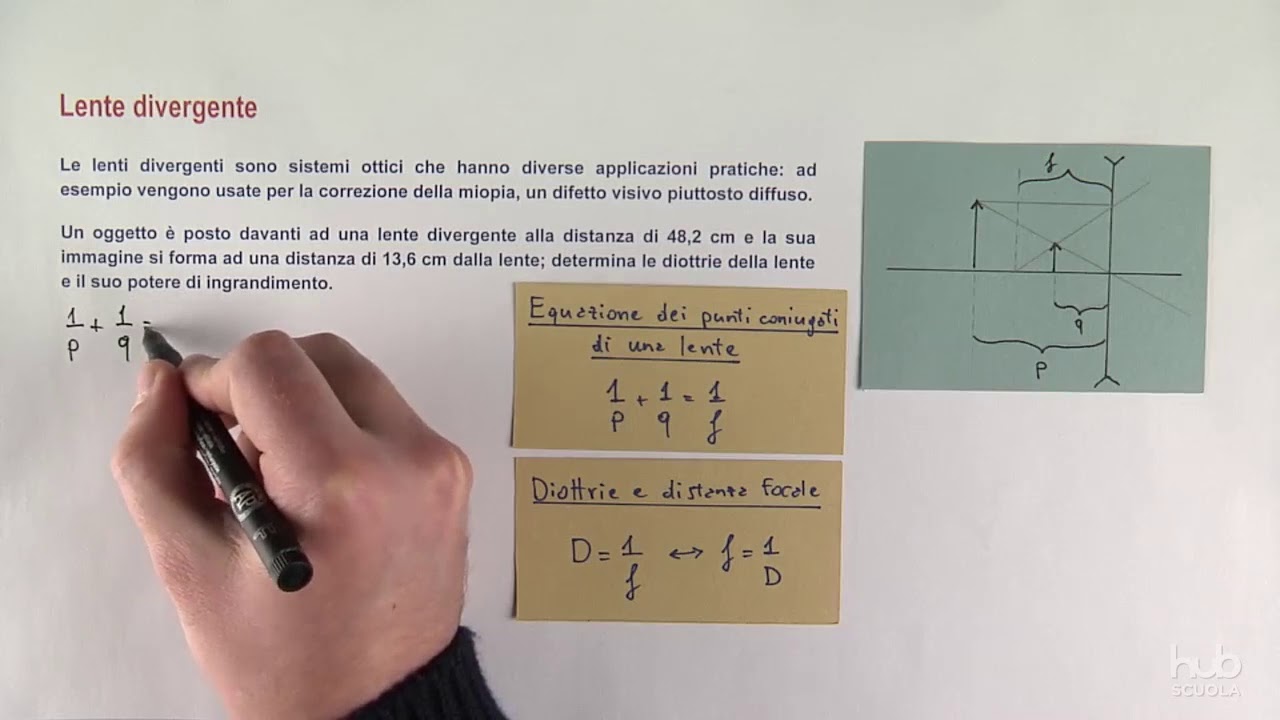 Lente divergente
Le lenti divergenti sono sistemi ottici che hanno diverse applicazioni pratiche: ad
esempio vengono usate per la correzione della miopia, un difetto visivo piuttosto diffuso.
Un oggetto è posto davanti ad una lente divergente alla distanza di 48,2 cm e la sua
immagine si forma ad una distanza di 13,6 cm dalla lente; determina le diottrie della lente
e il suo potere di ingrandimento.
1/p + 1/q =
Equazione dei punti coniugati
di una lente
1/p + 1/q = 1/f
Diottrie e distanza focale
D = 1/f ↔ f = 1/D
f
q
p
hub
SCUOLA